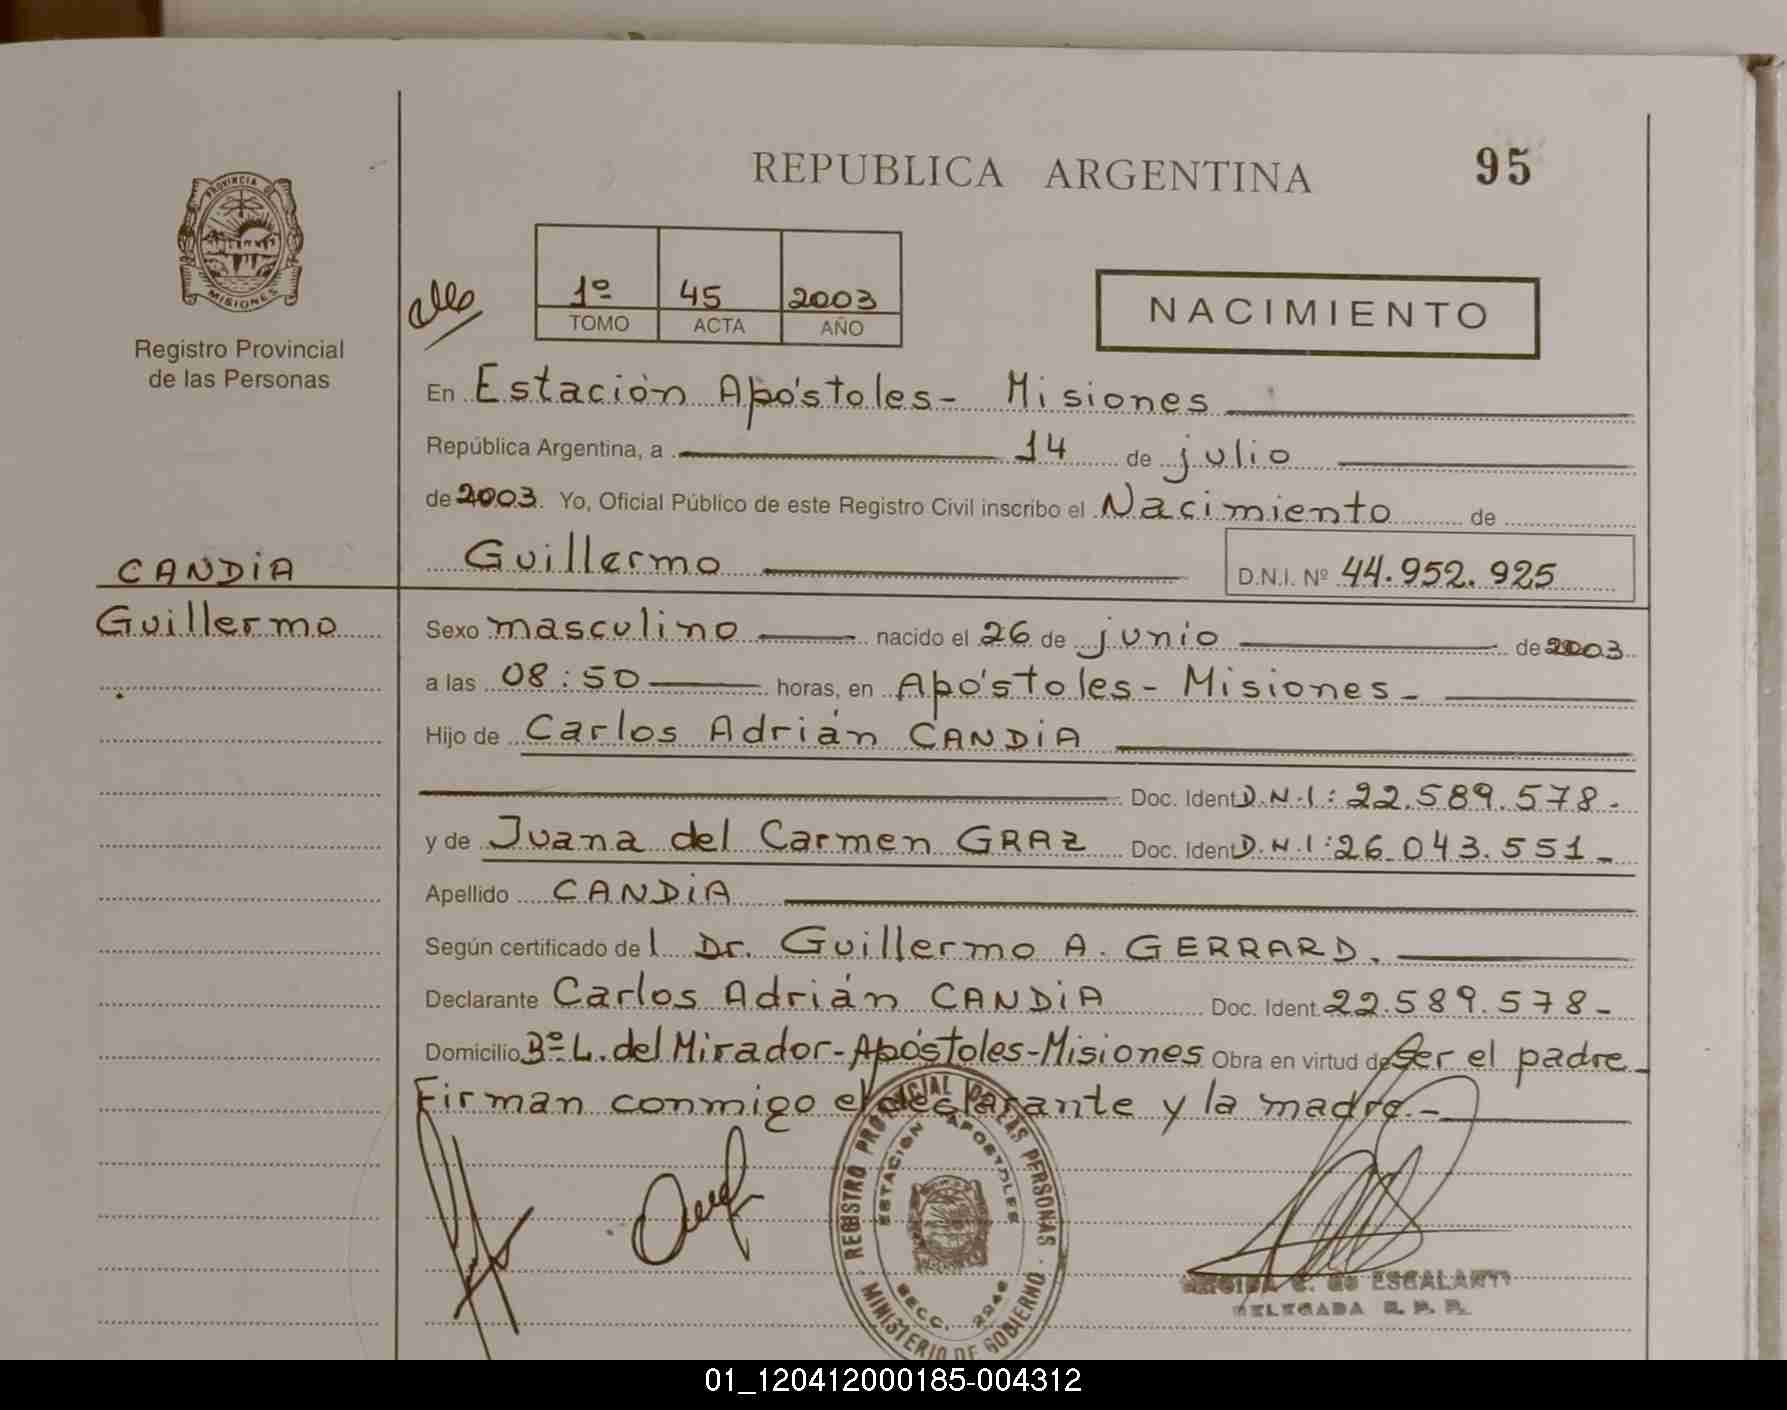 REPUBLICA ARGENTINA
95
PROVINCIA DE
MISIONES
Registro Provincial
de las Personas
1º 45 2003
TOMO ACTA AÑO
NACIMIENTO
En Estación Apóstoles- Misiones
República Argentina, a 14 de julio
de 2003. Yo, Oficial Público de este Registro Civil inscribo el Nacimiento de
Guillermo D.N.I. Nº 44.952.925
CANDiA
Guillermo
Sexo masculino nacido el 26 de junio de 2003
a las 08:50 horas, en Apóstoles- Misiones-
Hijo de Carlos Adrián CANDiA
Doc. Ident D.N.I: 22.589.578-
y de Juana del Carmen GRAZ Doc. Ident D.N.I: 26.043.551-
Apellido CANDiA
Según certificado de l Dr. Guillermo A. GERRARD.
Declarante Carlos Adrián CANDiA Doc. Ident. 22.589.578-
Domicilio Bº L. del Mirador-Apóstoles-Misiones Obra en virtud de ser el padre-
Firman conmigo el declarante y la madre.-
REGISTRO PROVINCIAL DE LAS PERSONAS
ESTACION APOSTOLES
SECC.
MINISTERIO DE GOBIERNO
ESCALANTE
DELEGADA R. P. P.
01_120412000185-004312